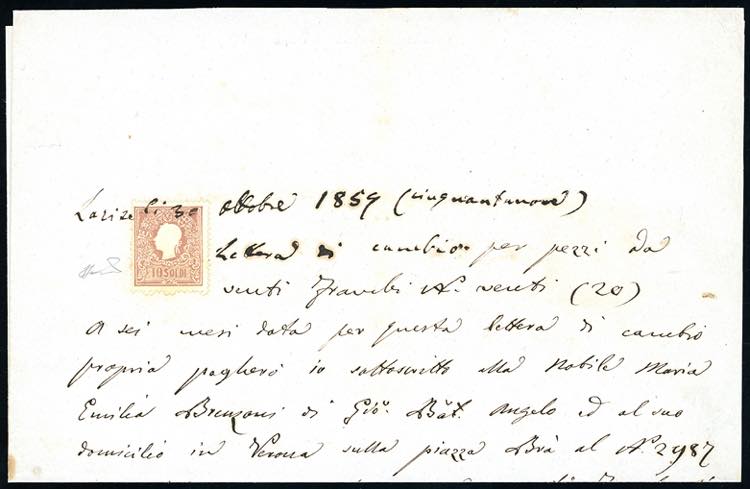 Lazise li 30 ottobre 1859 (cinquantanove)
10 SOLDI
Lettera di cambio per pezzi da
venti Franchi N.º venti (20)
A sei mesi data per questa lettera di cambio
propria pagherò io sottoscritto alla Nobile Maria
Emilia Brenzoni di Gio. Bat. Angelo ed al suo
domicilio in Verona sulla piazza Brà al N.º 2987